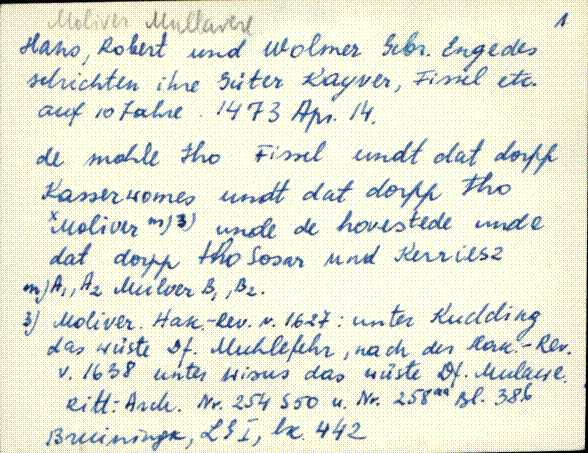 Moliver Mullavere
1
Hans, Robert und Wolmer Gebr. Engedes
schichten ihre Güter Kayver, Fissel etc.
auf 10 Jahre. 1473 Apr. 14.
de mohle tho Fissel undt dat dorpp
Kasserwomes undt dat dorpp tho
x Moliver m) 3) unde de hovestede unde
dat dorpp tho Sosar und Kerriesz
m) A1, A2 Mulver B1, B2.
3) Moliver. Hak.-Rev. v. 1627: unter Kudding
das wüste Df. Muhlefehr, nach der Hak.-Rev.
v. 1638 unter das wüste Df.
Ritt: Arch. Nr. 254 S50 u. Nr. 258aa Bl. 386
Bruiningk, LG I, 442